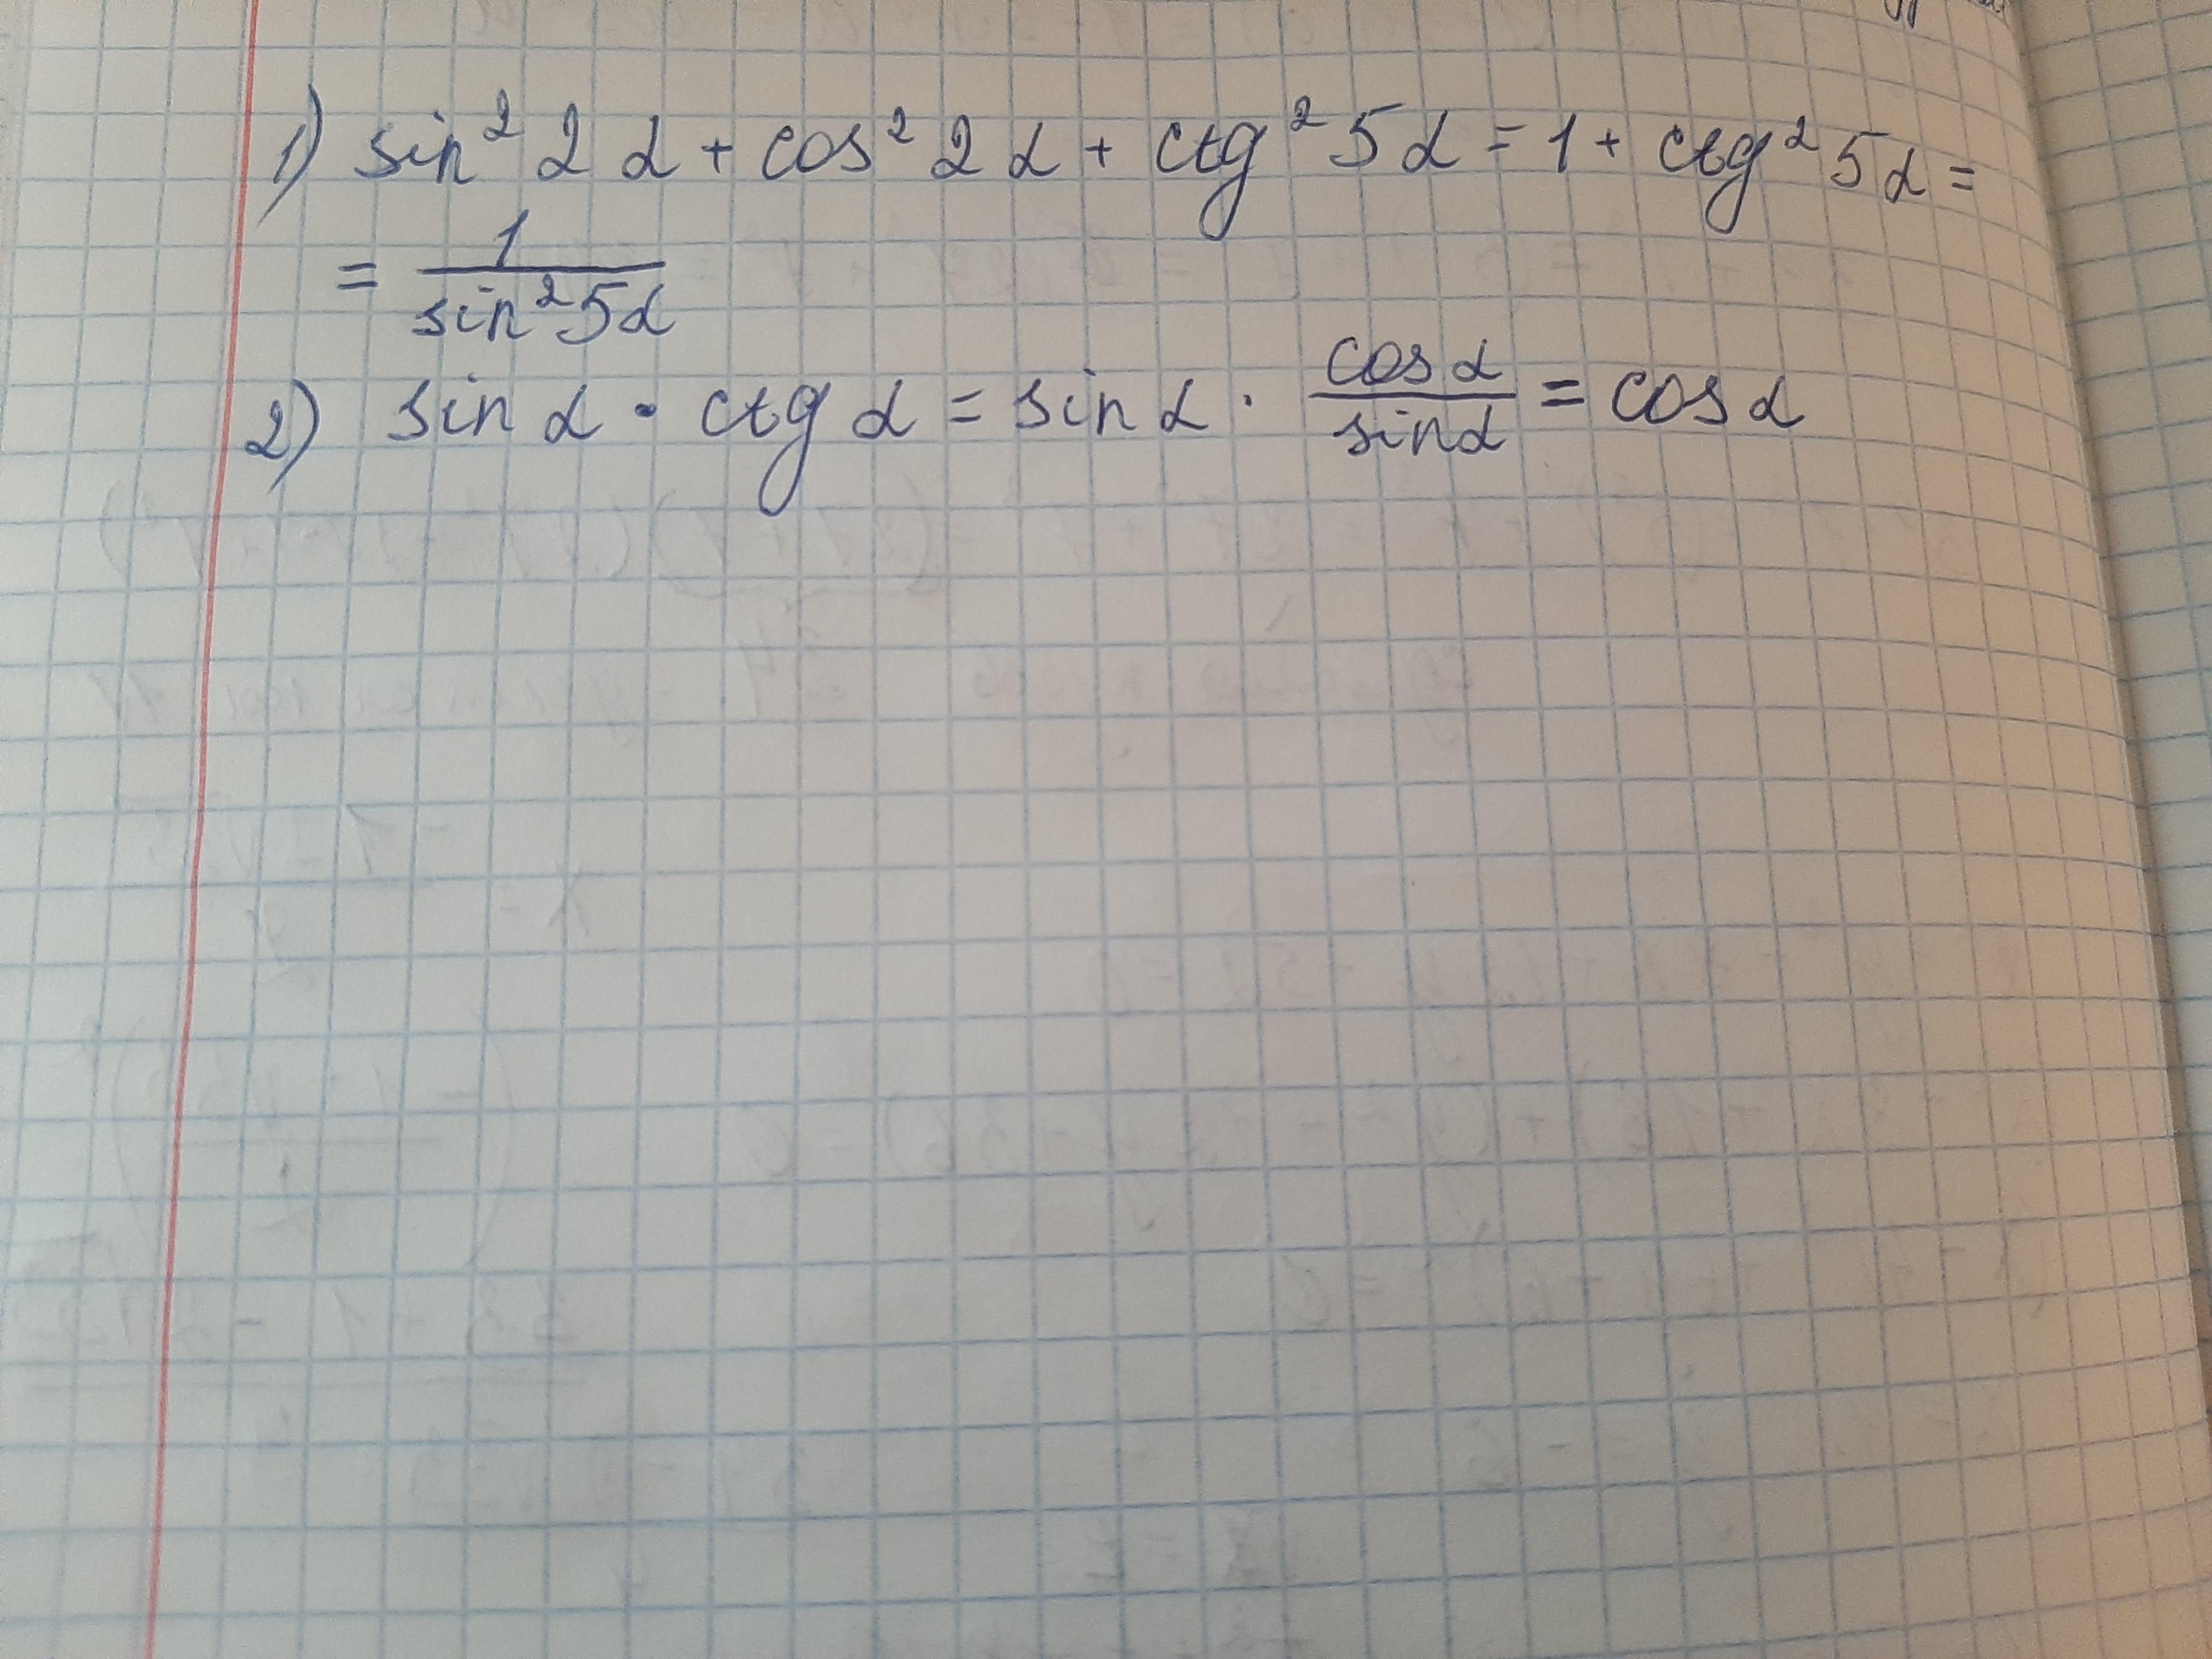 1) sin² 2α + cos² 2α + ctg² 5α = 1 + ctg² 5α =
= 1/sin² 5α
2) sin α · ctg α = sin α · cos α/sin α = cos α